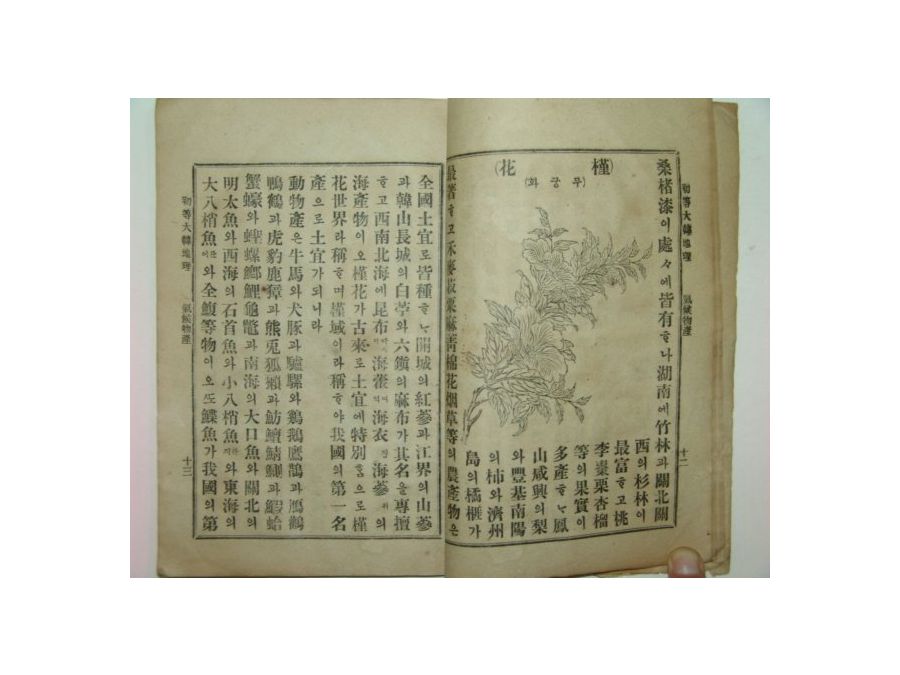 初等大韓地理 氣候物産 十二
桑楮漆이處々에皆有ᄒᆞ나湖南에竹林과關北關
西의杉林이
最富ᄒᆞ고桃
李棗栗杏榴
等의果實이
多產ᄒᆞᄂᆞ鳳
山咸興의梨
와豐基南陽
의柿와濟州
島의橘榧가
(槿花)
(무궁화)
最著ᄒᆞ고禾麥菽粟麻靑棉花烟草等의農產物은
全國土宜로皆種ᄒᆞᄂᆞ開城의紅蔘과江界의山蔘
과韓山長城의白苧와六鎭의麻布가其名을專擅
ᄒᆞ고西南北海에昆布海藿海衣海蔘의
海產物이오槿花가古來로土宜에特別ᄒᆞᆷ으로槿
花世界라稱ᄒᆞ며槿域이라稱ᄒᆞ야我國의第一名
產으로土宜가되니라
動物產은牛馬와犬豚과驢騾와鷄鵝鷹鶻과鴈鶴
鴨鶴과虎豹鹿獐과熊兎狐獺과魴鱣鯖鯽과鰕蛤
蟹蠔와蟶螺鄕鯉龜鼈과南海의大口魚와關北의
明太魚와西海의石首魚와小八梢魚와東海의
大八梢魚와全鰒等物이오ᄯᅩ鰈魚가我國의第
初等大韓地理 氣候物産 十三